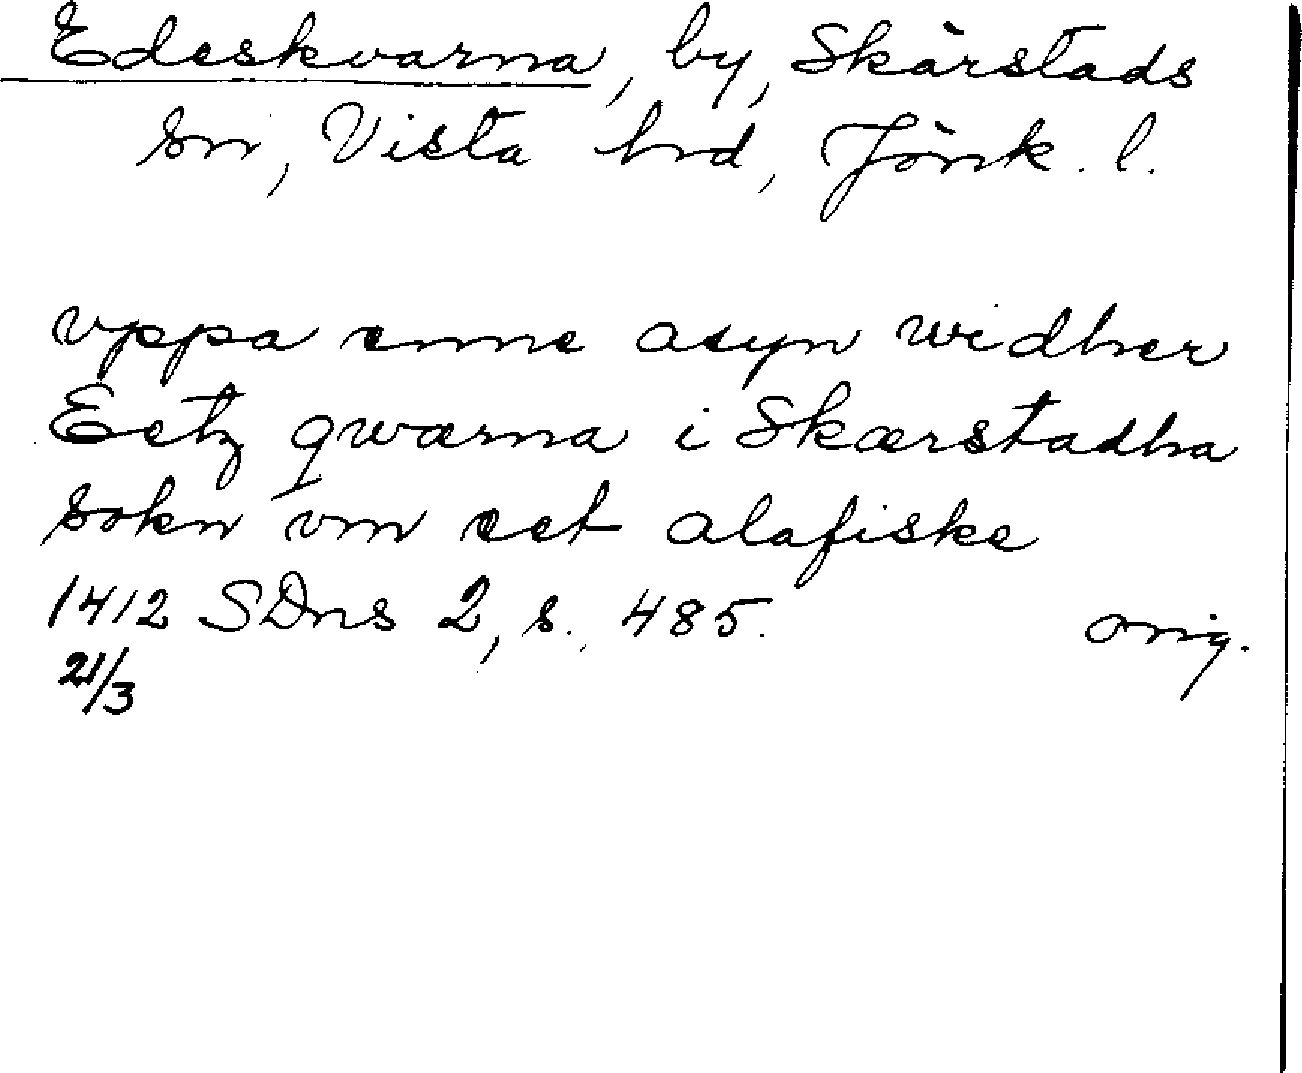 Edeskvarna, by, Skärstads
sn, Vista hrd, Jönk. l.
vppa enne asyn widher
Eetz qwærna i Skærstadha
sokn vm eet alafiske
1412 SDns 2, s. 485. orig.
21/3